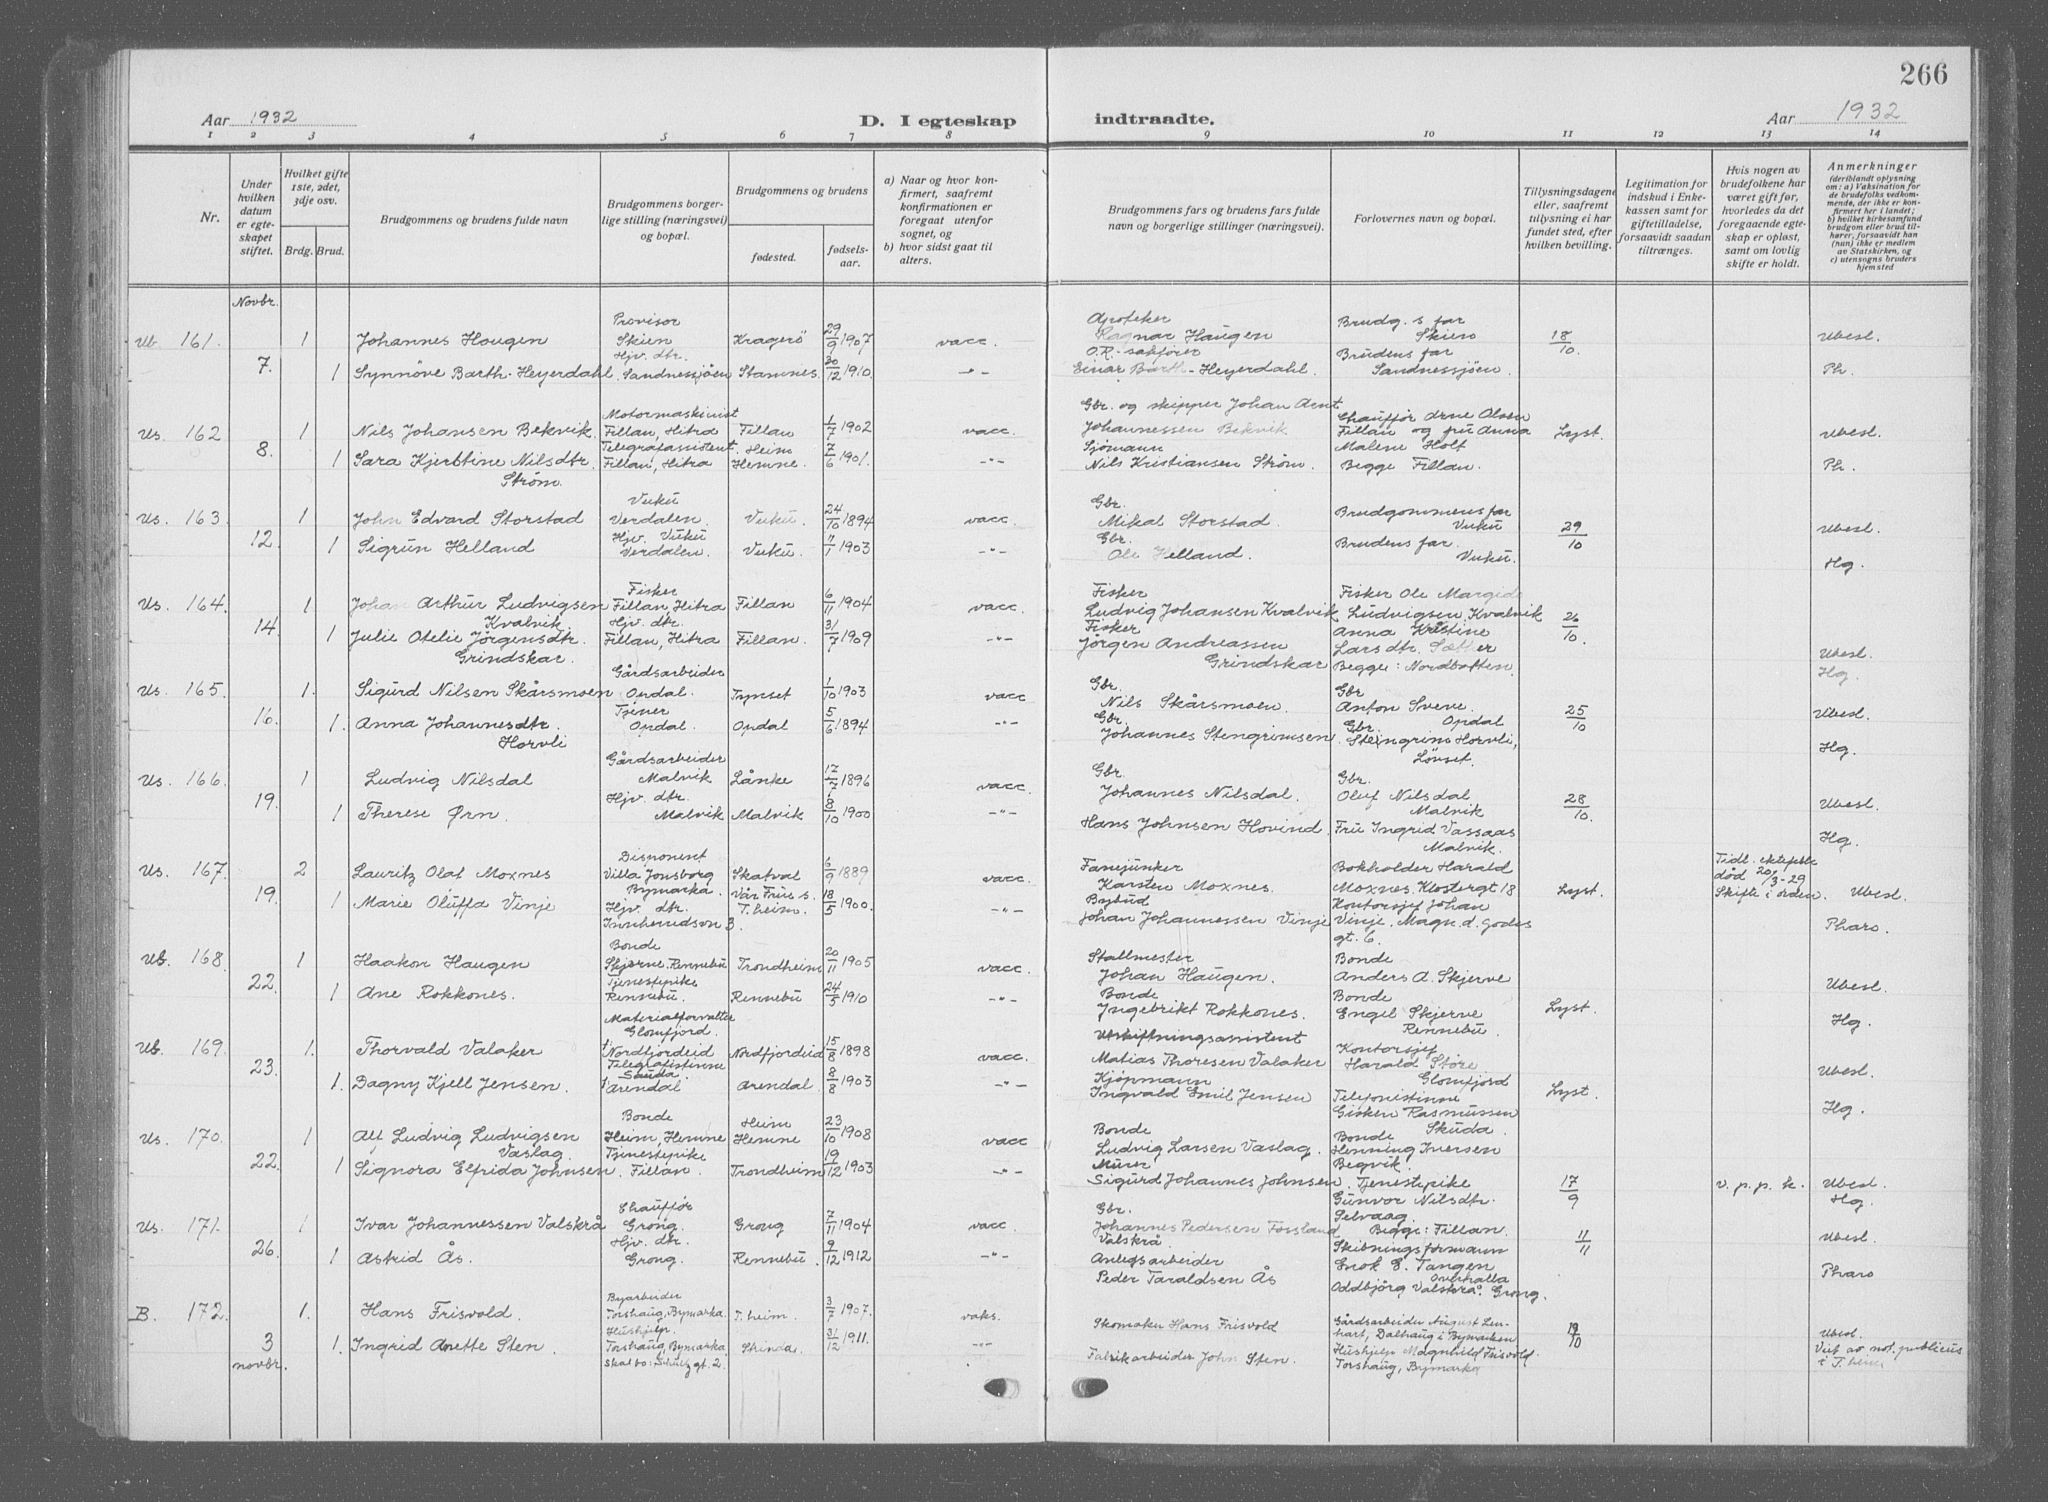 266
Aar 1932
D. I egteskap
indtraadte.
Aar 1932
1 2 3 4 5 6 7 8 9 10 11 12 13 14
Nr.
Under hvilken datum er egteskapet stiftet.
Hvilket gifte 1ste, 2det, 3dje osv.
Brdg. Brud.
Brudgommens og brudens fulde navn
Brudgommens borgerlige stilling (næringsvei) og bopæl.
Brudgommens og brudens
fødested.
fødselsaar.
a) Naar og hvor konfirmert, saafremt konfirmationen er foregaat utenfor sognet, og
b) hvor sidst gaat til alters.
Brudgommens fars og brudens fars fulde navn og borgerlige stillinger (næringsvei).
Forlovernes navn og bopæl.
Tillysningsdagene eller, saafremt tillysning ei har fundet sted, efter hvilken bevilling.
Legitimation for indskud i Enkekassen samt for giftetilladelse, forsaavidt saadan tiltrænges.
Hvis nogen av brudefolkene har været gift før, hvorledes da det foregaaende egteskap er opløst, samt om lovlig skifte er holdt.
Anmerkninger
(deriblandt oplysning om: a) Vaksination for de brudefolks vedkommende, der ikke er konfirmert her i landet; b) hvilket kirkesamfund brudgom eller brud tilhører, forsaavidt han (hun) ikke er medlem av Statskirken, og c) utensogns bruders hjemsted
Novbr.
Ub. 161. 1 Johannes Haugen Provisor Skien Kragerö 29/9 1907 vacc. Apoteker Ragnar Haugen Brudg.s far Skien 18/10. Ubesl.
7. 1 Synnöve Barth-Heyerdahl. Hjv. dtr. Sandnessjöen Stamnes. 30/12 1910. -"- O.R.-sakförer Einar Barth-Heyerdahl. Brudens far Sandnessjöen. Ph.
Us. 162 1 Nils Johansen Bekvik. Motormaskinist Fillan, Hitra Fillan 1/7 1902 vacc. Gbr. og skipper Johan Arnt Johannessen Bekvik Chaufför Arne Olsen Fillan og fru Anna Lyst. Ubesl.
8. 1 Sara Kjerstine Nilsdtr. Ström. Telegrafassistent. Fillan, Hitra Heim Hemne. 7/6 1901. -"- Sjömann Nils Kristiansen Ström. Malene Holt Begge Fillan. Ph.
Us. 163. 1 John Edvard Storstad Vuku Verdalen. Vuku. 24/10 1894 vacc. Gbr. Mikal Storstad. Brudgommens far Vuku 29/10 Ubesl.
12. 1 Sigrun Helland Hjv. Vuku Verdalen. Vuku. 11/1 1903 -"- Gbr. Ole Helland. Brudens far. Vuku. Hg.
Us. 164. 1 Johan Arthur Ludvigsen Kvalvik. Fisker Fillan, Hitra Fillan 6/11 1904 vacc. Fisker Ludvig Johansen Kvalvik Fisker Ole Margido Ludvigsen Kvalvik 26/10.
14. 1 Julie Otelie Jörgensdtr. Grindskar. Hjv. dtr. Fillan, Hitra Fillan. 31/7 1909 -"- Fisker Jörgen Andreassen Grindskar Anna Kristine Larsdtr. Sæther Begge: Nordbotten. Ubesl. Hg.
Us. 165. 1. Sigurd Nilsen Skårsmoen Gårdsarbeider Opdal. Tynset 1/10 1903 vacc Gbr. Nils Skårsmoen. Gbr Anton Sveve. Opdal 25/10 Ubesl.
16. 1. Anna Johannesdtr. Horvli Tjener Opdal. Opdal 5/6 1894 -"- Gbr. Johannes Stengrimsen. Gbr. Steingrim Horvli, Lönset. Hg.
Us. 166. 1 Ludvig Nilsdal Gårdsarbeider Malvik Lånke 17/7 1896 vacc. Gbr. Johannes Nilsdal. Gbr. Oluf Nilsdal Malvik 28/10. Ubesl.
19. 1 Therese Ørn. Hjv. dtr. Malvik Malvik 8/10 1900 -"- Hans Johnsen Hovind. Fru Ingrid Vassaas Malvik. Hg.
Us. 167. 2 Lauritz Olaf Moxnes Disponent Villa Jonsborg Bymarka. Skatval 6/9 1889 vacc. Fanejunker Karsten Moxnes. Bokholder Harald Moxnes. Klostergt 18 Lyst. Tidl. ektefelle död 20/3-29 Skifte i orden. Ubesl.
19. 1 Marie Oluffa Vinje Hjv. dtr. Innherredsvn 3. Vår Frue s. T.heim. 18/5 1900. -"- Bybud Johan Johannessen Vinje Kontorsjef Johan Vinje. Magn. d. Godes gt. 6. Pharo.
Ub. 168. 1 Haakon Haugen Bonde Skjerve. Rennebu Trondheim 20/11 1905 vacc. Stallmester Johan Haugen. Bonde Anders A. Skjerve Ubesl.
22. 1 Ane Rokkones. Tjenestepike Rennebu. Rennebu 24/5 1910 -"- Bonde Ingebrikt Rokkones. Bonde Engel Skjerve Rennebu. Lyst. Hg.
Ub. 169. 1. Thorvald Valaker Materialforvalter Glomfjord. Nordfjordeid Nordfjordeid 15/8 1898 vacc. Utskiftningsassistent Matias Thoresen Valaker Kontorsjef Harald Störe Glomfjord Ubesl.
23. 1. Dagny Kjell Jensen. Telegrafistinne Sauda Arendal Arendal. 8/8 1903 -"- Kjöpmann Ingvald Emil Jensen Telefonistinne Gisken Rasmussen Skuda. Lyst. Hg.
Us. 170. 1 Alf Ludvig Ludvigsen Vaslag. Bonde Heim, Hemne Heim Hemne 23/10 1908 vacc Bonde Ludvig Larsen Vaslag. Bonde Henning Iversen Begvik.
22. 1 Signora Elfrida Johnsen. Tjenestepike Fillan. Trondheim 19/12 1903 -"- Murer Sigurd Johannes Johnsen. Tjenestepike Gunvor Nilsdtr. Selvaag. Begge: Fillan. 17/9 v. p. p. k. Ubesl. Hg.
Us. 171. 1 Ivar Johannessen Valskrå Chaufför Grong. Grong 7/11 1904 vacc. Gbr. Johannes Pedersen Fossland Valskrå Skibningsformann Enok E. Tangen Overhalla 11/11 Ubesl.
26. 1 Astrid Ås. Hjv. dtr. Grong. Rennebu. 9/12 1912 -"- Anlegsarbeider Peder Taraldsen Ås Oddbjörg Valskrå. Grong. Pharo
B. 172. 1. Hans Frisvold. Byarbeider Torshaug, Bymarka. T.heim. 3/7 1907. vaks. Skomaker Hans Frisvold Gårdsarbeider August Lenhart, Dalhaug i Bymarken 19/10 Ubesl.
3 novbr. 1. Ingrid Anette Sten. Hushjelp. Torshaug, Bymarka. Skal bo: Schultz gt. 2. Strinda. 31/12 1911. -"- Fabrikarbeider John Sten. Hushjelp Magnhild Frisvold. Torshaug, Bymarka Viet av not. publicus i T.heim